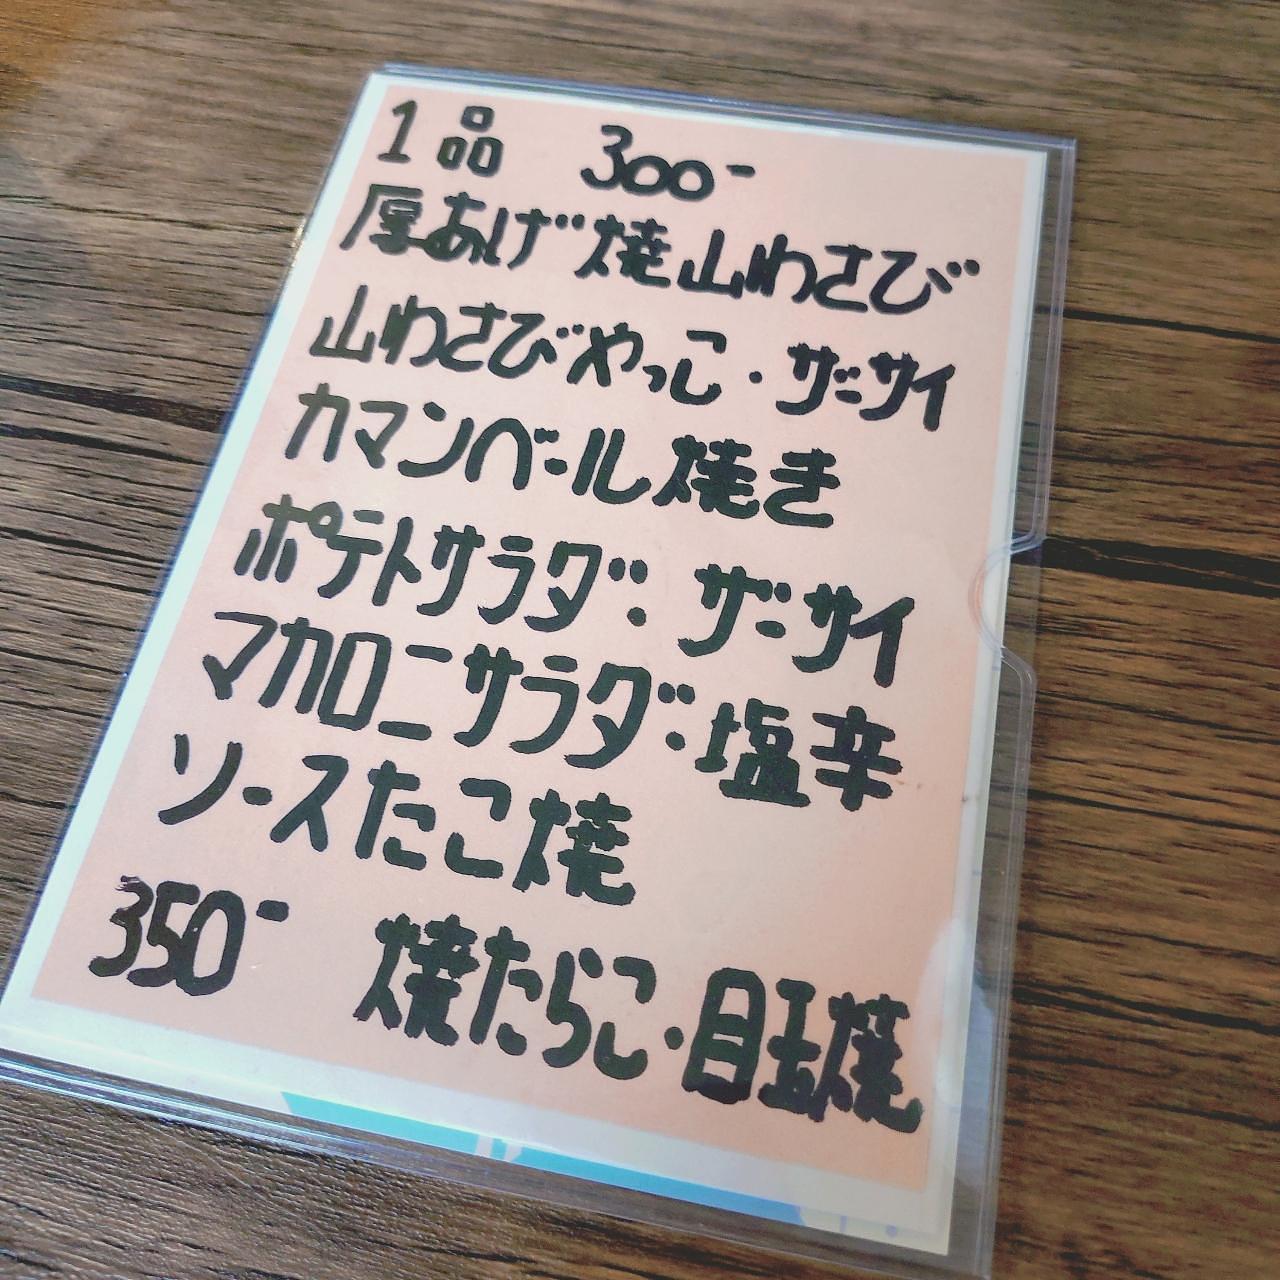 1品 300-
厚あげ焼山わさび
山わさびやっこ・ザーサイ
カマンベール焼き
ポテトサラダ・ザーサイ
マカロニサラダ・塩辛
ソースたこ焼
350- 焼たらこ・目玉焼